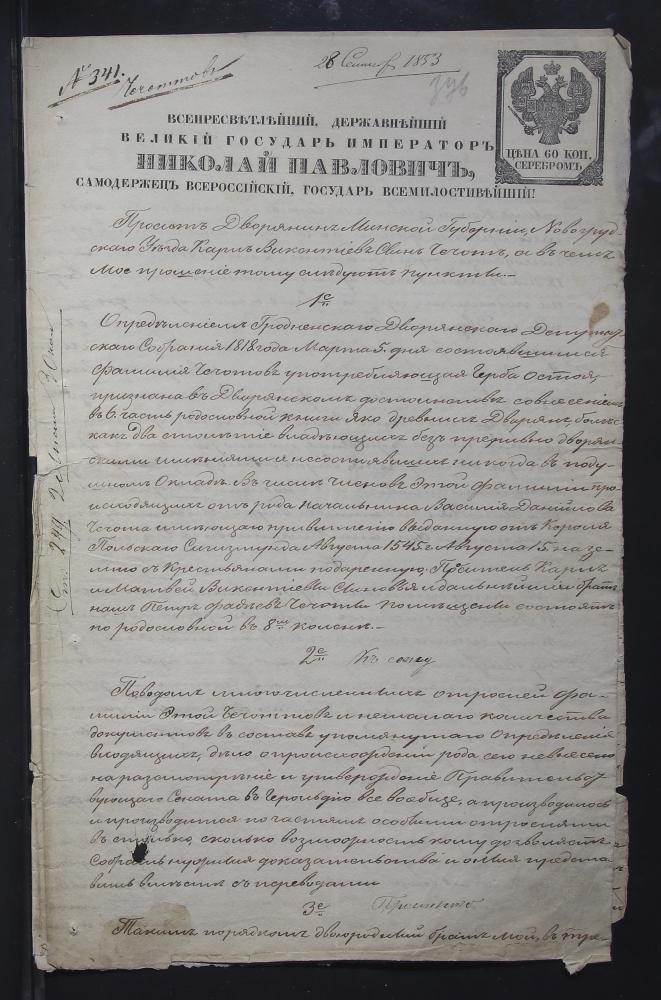 № 341.
Чечоттовъ
28 Сентяб 1853
ЦѢНА 60 КОП.
СЕРЕБРОМЪ
ВСЕПРЕСВѢТЛѢЙШІЙ, ДЕРЖАВНѢЙШІЙ
ВЕЛИКІЙ ГОСУДАРЬ ИМПЕРАТОРЪ
НИКОЛАЙ ПАВЛОВИЧЪ,
САМОДЕРЖЕЦЪ ВСЕРОССІЙСКІЙ, ГОСУДАРЬ ВСЕМИЛОСТИВѢЙШІЙ!
Проситъ Дворянинъ Минской Губерніи, Новогруд-
скаго Уѣзда Карлъ Викентіевъ Сынъ Чечотъ, а въ чемъ
мое прошеніе тому слѣдуютъ пункты.—
1е
Опредѣленіемъ Гродненскаго Дворянскаго Депутат-
скаго Собранія 1818 года Марта 5 дня состоявшимся
фамилія Чечотовъ употребляющая Герба Остоя,
признана въ Дворянскомъ достоинствѣ совнесеніемъ
въ 6. часть родословной книги яко древнихъ Дворянъ, болѣе
какъ два столѣтіе владѣющихъ безъ прерывно дворян-
скими имѣніями и несостоявшихъ никогда въ поду-
шномъ Окладѣ. Въ числѣ членовъ этой фамиліи про-
исходящихъ отъ рода начальника Василія Данилова
Чечота имѣющаго привиллегію выданную отъ Короля
Польскаго Сигизмунда Августа 1545 г Августа 15 на зе-
млю съ Крестьянами подаренную; Проситель Карлъ
и Матвей Викентіевы Сыновья и дальнѣйшій братъ
нашъ Петръ Фадѣевъ Чечоты помѣщены состоятъ
по родословной въ 8мъ коленѣ.—
2е Къ сему
Поводомъ многочисленныхъ отраслей фа-
миліи этой Чечоттовъ и немалаго количества
документовъ въ составъ упомянутаго Опредѣленія
входящихъ, дѣло о происхожденіи рода сего невнесено
на разсмотрѣніе и утвержденіе Правительст-
вующаго Сената въ Герольдію все вообще, а производилось
и производится по частямъ особыми отраслями
въ столько, сколько возможность кому дозволяетъ
Собрать нужныя доказательства и оныя предста-
вить вмѣстѣ съ переводами
3е Прошенію
Такимъ порядкомъ двоюродный братъ мой, въ тре-